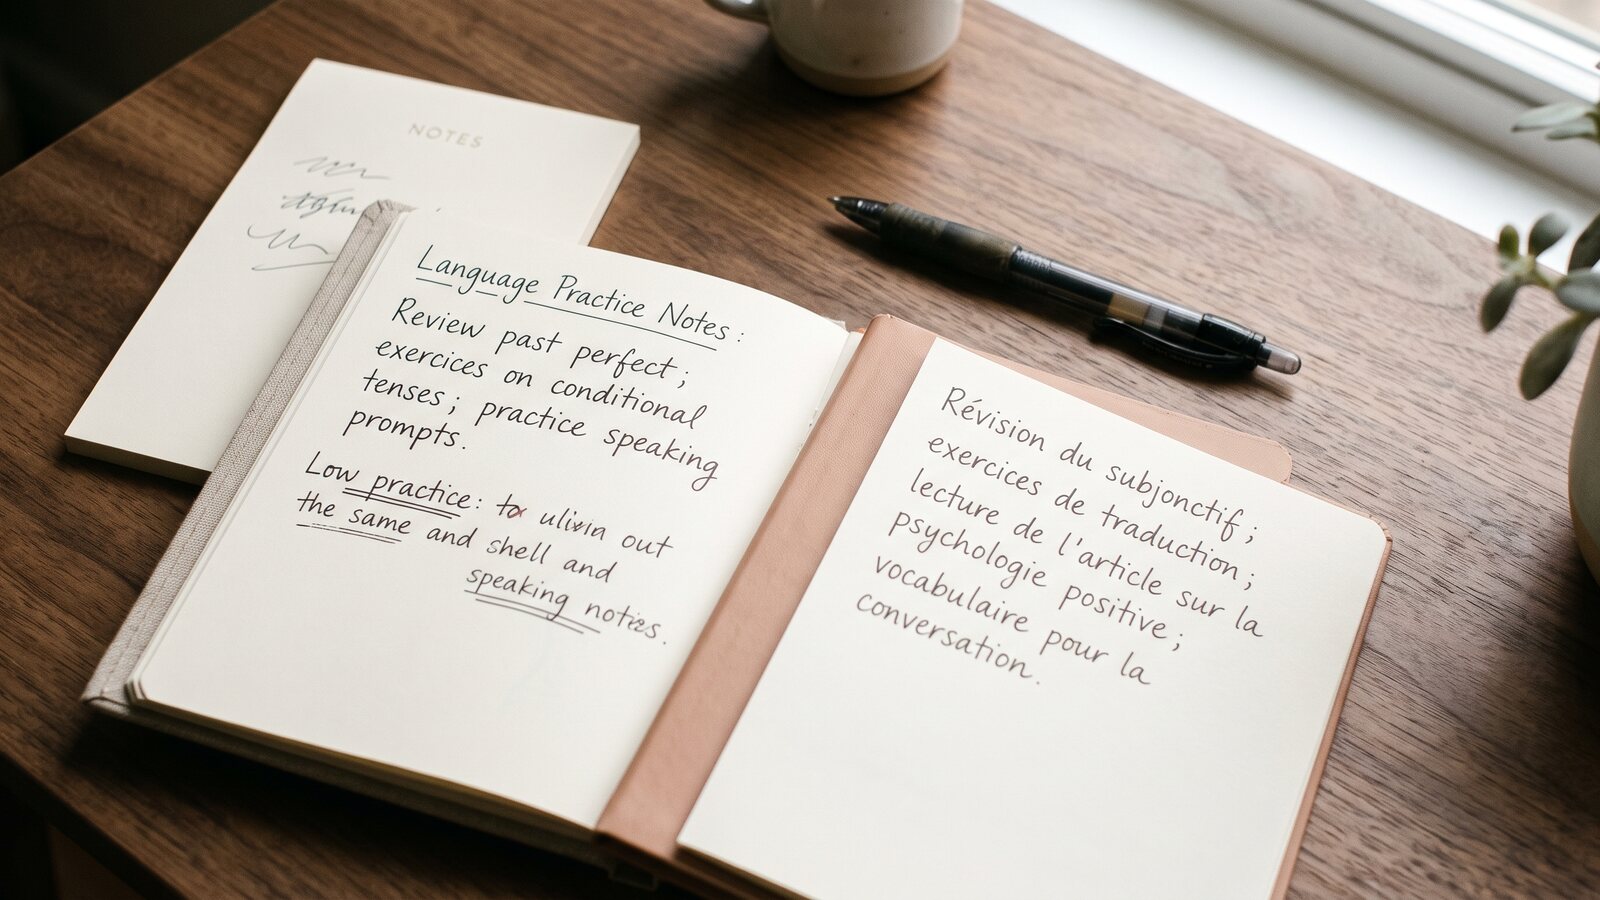 NOTES
Language Practice Notes:
Review past perfect;
exercices on conditional
tenses; practice speaking
prompts.
Low practice: to out
the same and shell and
speaking notes.
Révision du subjonctif;
exercices de traduction;
lecture de l'article sur la
psychologie positive;
vocabulaire pour la
conversation.